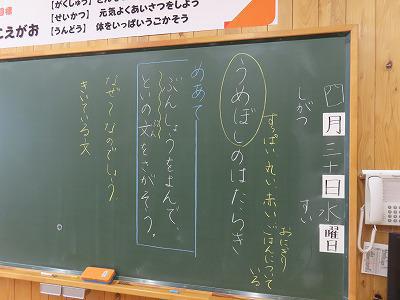 【せいかつ】 元気よくあいさつをしよう
【うんどう】 体をいっぱいうごかそう
えがお
四月三十日水曜日
しがつ
すい
うめぼしのはたらき
すっぱい 丸い 赤い ごはんについている
おにぎり
めあて
ぶんしょうをよんで、
といの文をさがそう。
なぜ〜なのでしょう。
きいている文